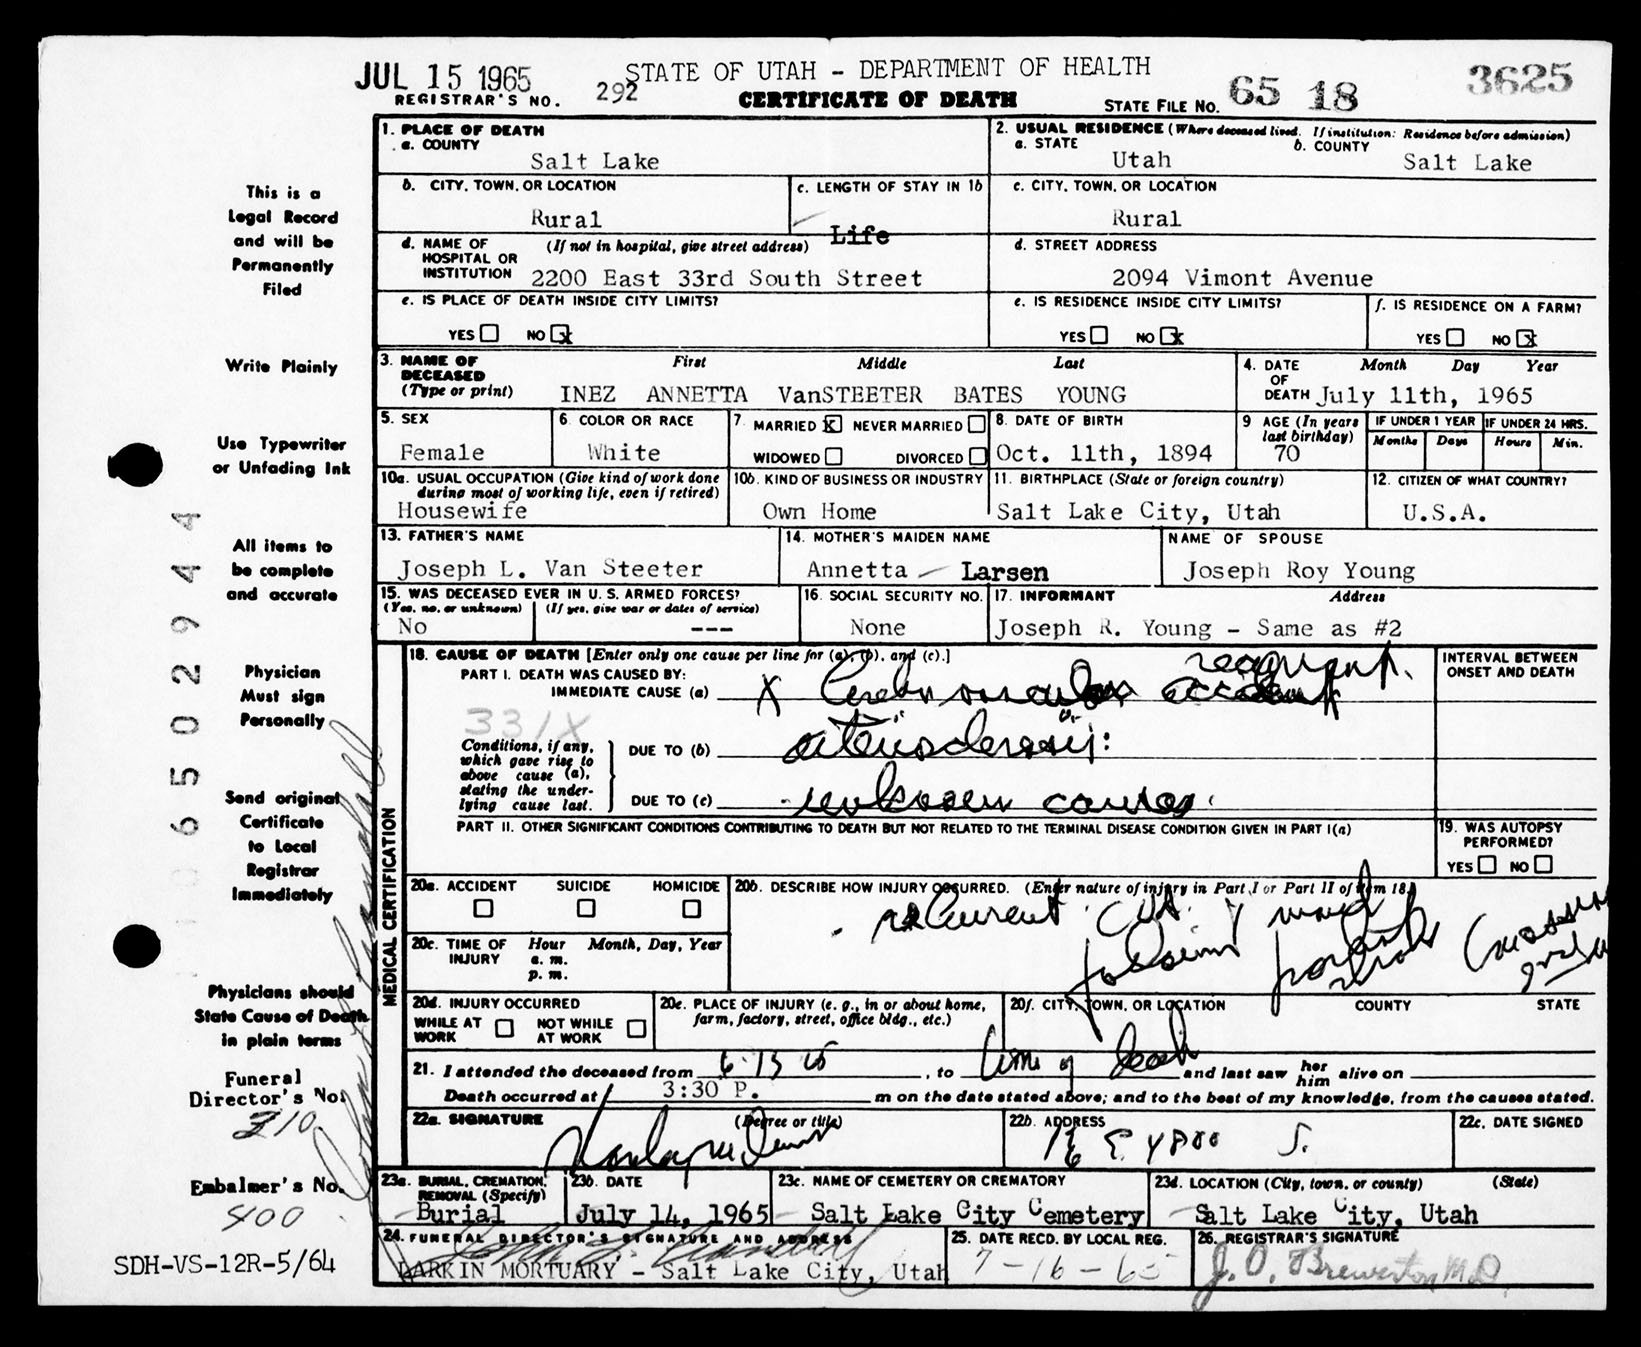 JUL 15 1965
STATE OF UTAH - DEPARTMENT OF HEALTH
3625
REGISTRAR'S NO. 292
CERTIFICATE OF DEATH
STATE FILE NO. 65 18
This is a
Legal Record
and will be
Permanently
Filed
Write Plainly
Use Typewriter
or Unfading Ink
All items to
be complete
and accurate
Physician
Must sign
Personally
Send original
Certificate
to Local
Registrar
Immediately
Physicians should
State Cause of Death
in plain terms
Funeral
Director's No.
310
Embalmer's No.
400
SDH-VS-12R-5/64
0 6 5 0 2 9 4 4
1. PLACE OF DEATH
a. COUNTY
Salt Lake
2. USUAL RESIDENCE (Where deceased lived. If institution: Residence before admission)
a. STATE
Utah
b. COUNTY
Salt Lake
b. CITY, TOWN, OR LOCATION
Rural
c. LENGTH OF STAY IN 1b
Life
c. CITY, TOWN, OR LOCATION
Rural
d. NAME OF HOSPITAL OR INSTITUTION
(If not in hospital, give street address)
2200 East 33rd South Street
d. STREET ADDRESS
2094 Vimont Avenue
e. IS PLACE OF DEATH INSIDE CITY LIMITS?
YES NO X
e. IS RESIDENCE INSIDE CITY LIMITS?
YES NO X
f. IS RESIDENCE ON A FARM?
YES NO X
3. NAME OF DECEASED (Type or print)
First Middle Last
INEZ ANNETTA VanSTEETER BATES YOUNG
4. DATE OF DEATH
Month Day Year
July 11th, 1965
5. SEX
Female
6. COLOR OR RACE
White
7. MARRIED X NEVER MARRIED
WIDOWED DIVORCED
8. DATE OF BIRTH
Oct. 11th, 1894
9 AGE (In years last birthday)
70
IF UNDER 1 YEAR
Months Days
IF UNDER 24 HRS.
Hours Min.
10a. USUAL OCCUPATION (Give kind of work done during most of working life, even if retired)
Housewife
10b. KIND OF BUSINESS OR INDUSTRY
Own Home
11. BIRTHPLACE (State or foreign country)
Salt Lake City, Utah
12. CITIZEN OF WHAT COUNTRY?
U.S.A.
13. FATHER'S NAME
Joseph L. Van Steeter
14. MOTHER'S MAIDEN NAME
Annetta Larsen
NAME OF SPOUSE
Joseph Roy Young
15. WAS DECEASED EVER IN U. S. ARMED FORCES?
(Yes, no, or unknown) (If yes, give war or dates of service)
No ---
16. SOCIAL SECURITY NO.
None
17. INFORMANT Address
Joseph R. Young - Same as #2
MEDICAL CERTIFICATION
18. CAUSE OF DEATH [Enter only one cause per line for (a), (b), and (c).]
INTERVAL BETWEEN ONSET AND DEATH
PART I. DEATH WAS CAUSED BY:
IMMEDIATE CAUSE (a) X accident
331X
Conditions, if any, which gave rise to above cause (a), stating the underlying cause last.
DUE TO (b)
DUE TO (c) unknown cause
PART II. OTHER SIGNIFICANT CONDITIONS CONTRIBUTING TO DEATH BUT NOT RELATED TO THE TERMINAL DISEASE CONDITION GIVEN IN PART I(a)
19. WAS AUTOPSY PERFORMED?
YES NO
20a. ACCIDENT SUICIDE HOMICIDE
20b. DESCRIBE HOW INJURY OCCURRED. (Enter nature of injury in Part I or Part II of item 18.)
recurrent
20c. TIME OF INJURY
Hour Month, Day, Year
a. m.
p. m.
20d. INJURY OCCURRED
WHILE AT WORK NOT WHILE AT WORK
20e. PLACE OF INJURY (e. g., in or about home, farm, factory, street, office bldg., etc.)
20f. CITY, TOWN, OR LOCATION COUNTY STATE
21. I attended the deceased from , to time of death and last saw her him alive on
Death occurred at 3:30 P. m on the date stated above; and to the best of my knowledge, from the causes stated.
22a. SIGNATURE (Degree or title)
22b. ADDRESS
22c. DATE SIGNED
23a. BURIAL, CREMATION, REMOVAL (Specify)
Burial
23b. DATE
July 14, 1965
23c. NAME OF CEMETERY OR CREMATORY
Salt Lake City Cemetery
23d. LOCATION (City, town, or county) (State)
Salt Lake City, Utah
24. FUNERAL DIRECTOR'S SIGNATURE AND ADDRESS
LARKIN MORTUARY - Salt Lake City, Utah
25. DATE RECD. BY LOCAL REG.
7-16-65
26. REGISTRAR'S SIGNATURE
J. O. Brewerton M.D.